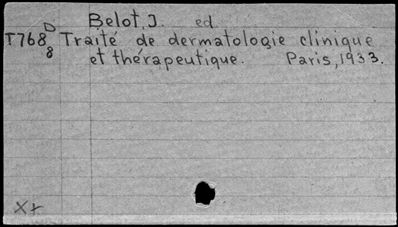 Belot, J. ed
D
T768 Traité de dermatologie clinique
8 et thérapeutique. Paris, 1933.
X+